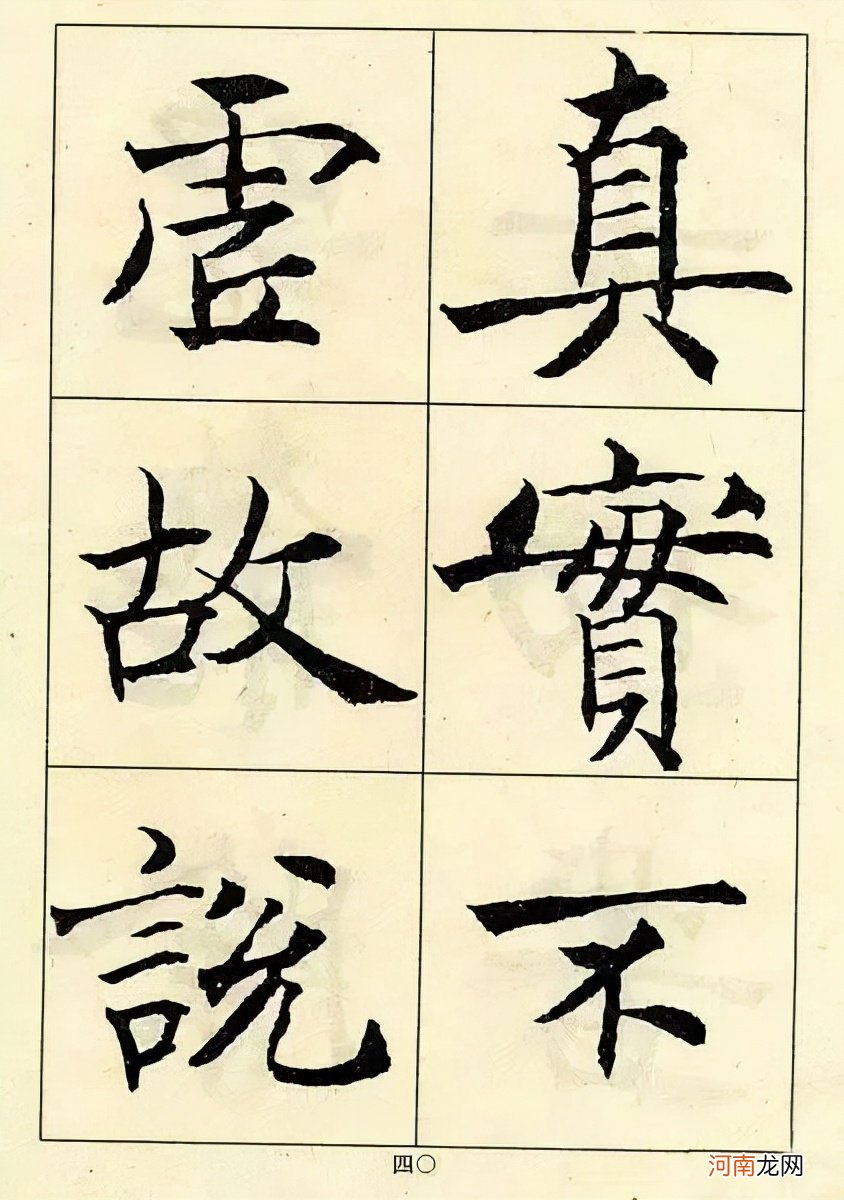 真實不
虛故說
四〇
河南龙网